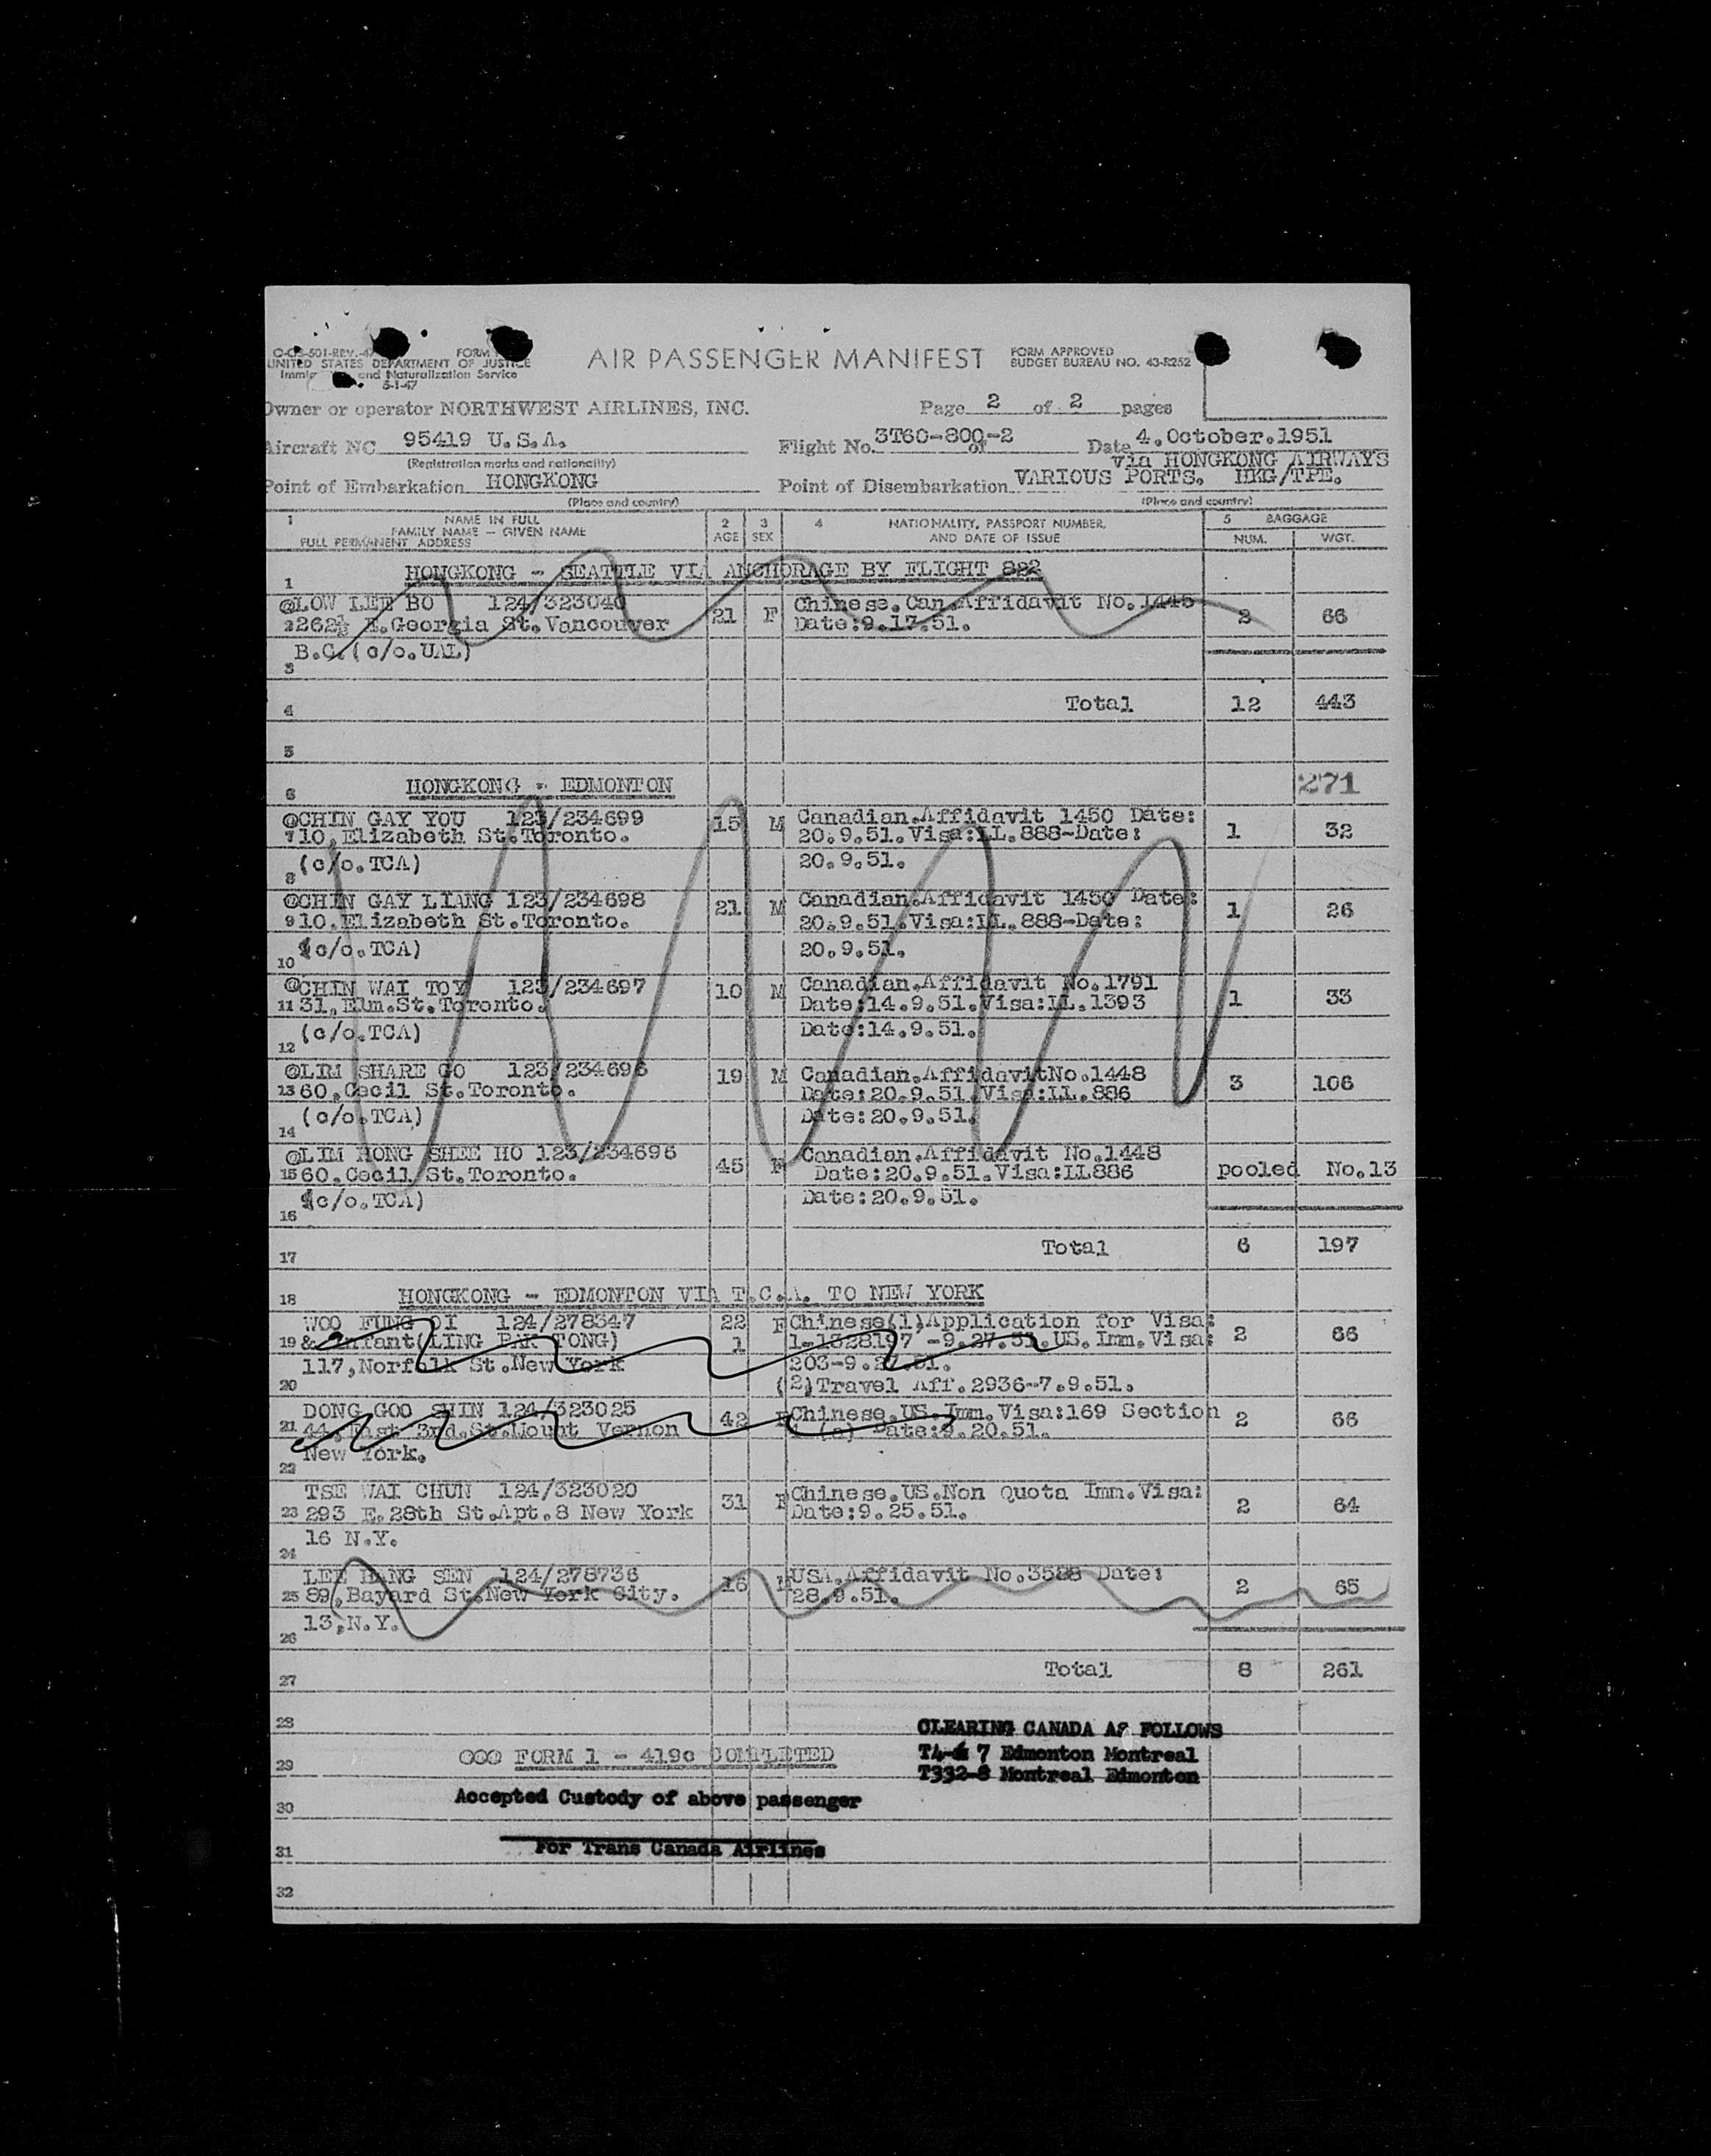 FORM
UNITED STATES DEPARTMENT OF JUSTICE
and Naturalization Service
5-1-47
AIR PASSENGER MANIFEST
FORM APPROVED
BUDGET BUREAU NO. 43-R252
Owner or operator NORTHWEST AIRLINES, INC.
Page 2 of 2 pages
Aircraft NC 95419 U.S.A.
(Registration marks and nationality)
Flight No. 3T60-800-2 of
Date 4.October.1951
via HONGKONG AIRWAYS
Point of Embarkation HONGKONG
(Place and country)
Point of Disembarkation VARIOUS PORTS. HKG/TPE.
(Place and country)
1 NAME IN FULL
FAMILY NAME – GIVEN NAME
FULL PERMANENT ADDRESS
2 AGE
3 SEX
4 NATIONALITY, PASSPORT NUMBER,
AND DATE OF ISSUE
5 BAGGAGE
NUM. WGT.
1 HONGKONG - SEATTLE VIA ANCHORAGE BY FLIGHT 822
@LOW LEE BO 124/323040 21 F Chinese.Can.Affidavit No.1445 2 66
2 262½ E.Georgia St.Vancouver Date:9.17.51.
B.C.(c/o.UAL)
3
4 Total 12 443
5
6 HONGKONG - EDMONTON 271
@CHIN GAY YOU 123/234699 15 M Canadian.Affidavit 1450 Date:
7 10,Elizabeth St.Toronto. 20.9.51.Visa:LL.888-Date: 1 32
8 (c/o.TCA) 20.9.51.
@CHIN GAY LIANG 123/234698 21 M Canadian.Affidavit 1450 Date:
9 10.Elizabeth St.Toronto. 20.9.51.Visa:LL.888-Date: 1 26
10 (c/o.TCA) 20.9.51.
@CHIN WAI TOY 123/234697 10 M Canadian.Affidavit No.1791
11 31,Elm.St.Toronto. Date:14.9.51.Visa:LL.1393 1 33
12 (c/o.TCA) Date:14.9.51.
@LIM SHARE GO 123/234696 19 M Canadian.AffidavitNo.1448
13 60,Cecil St.Toronto. Date:20.9.51.Visa:LL.886 3 106
14 (c/o.TCA) Date:20.9.51.
@LIM HONG SHEE HO 123/234696 45 F Canadian.Affidavit No.1448
15 60.Cecil St.Toronto. Date:20.9.51.Visa:LL886 pooled No.13
16 (c/o.TCA) Date:20.9.51.
17 Total 6 197
18 HONGKONG - EDMONTON VIA T.C.A. TO NEW YORK
WOO FUNG OI 124/278347 22 F Chinese(1)Application for Visa:
19 & infant(LING PAK TONG) 1 1-1328197 -9.27.51.US.Imm.Visa: 2 66
117,Norfolk St.New York 203-9.27.51.
20 (2)Travel Aff.2936-7.9.51.
DONG GOO SHIN 124/323025 42 F Chinese.US.Imm.Visa:169 Section 2 66
21 44,East 3rd.St.Mount Vernon 4 (a) Date:9.20.51.
New York.
22
TSE WAI CHUN 124/323020 31 F Chinese.US.Non Quota Imm.Visa:
23 293 E.28th St.Apt.8 New York Date:9.25.51. 2 64
16 N.Y.
24
LEE HANG SEN 124/278736 16 M USA.Affidavit No.3588 Date: 2 65
25 89,Bayard St.New York City. 28.9.51.
13,N.Y.
26
27 Total 8 261
28 CLEARING CANADA AS FOLLOWS
29 @@@ FORM 1 - 419c COMPLETED T4- 7 Edmonton Montreal
T332-8 Montreal Edmonton
30 Accepted Custody of above passenger
31 For Trans Canada Airlines
32